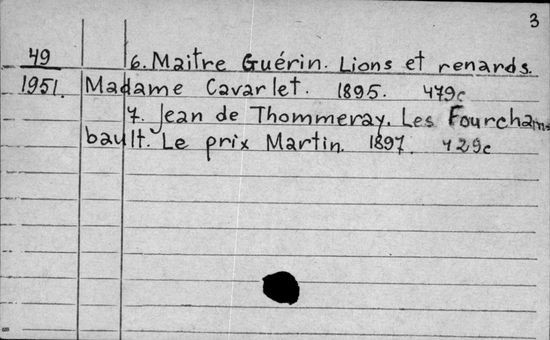 3
49 6. Maitre Guérin. Lions et renards.
1951. Madame Cavarlet. 1895. 479c
7. Jean de Thommeray. Les Fourcham=
bault. Le prix Martin. 1897. 429c